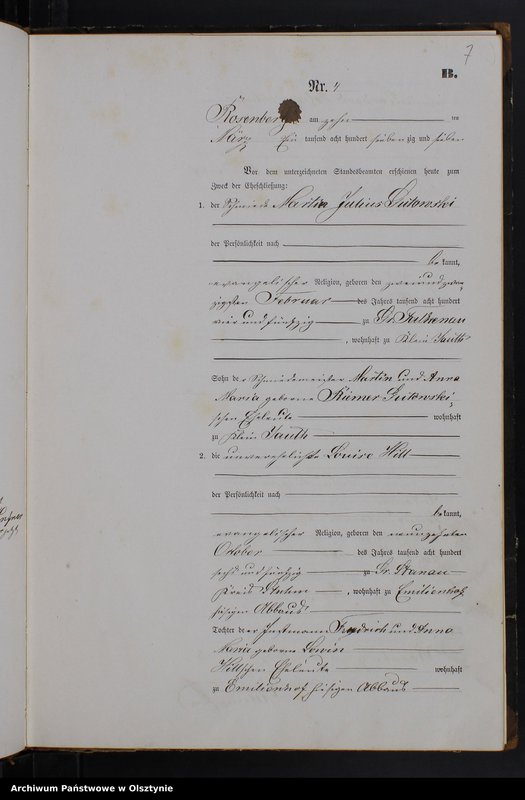 7
B.
Nr. 4
Rosenberg am zehn ten
März Ein tausend acht hundert sieben zig und sieben
Vor dem unterzeichneten Standesbeamten erschienen heute zum
Zweck der Eheschließung:
1. der Schmied Martin Julius Gutowski
der Persönlichkeit nach
be kannt,
evangelischer Religion, geboren den zweiundzwan
zigsten Februar des Jahres tausend acht hundert
vier und fünfzig zu Gr.
, wohnhaft zu Klein Jauth
Sohn der Schmiedemeister Martin und Anna
Maria geborne Gutowski
schen Eheleute wohnhaft
zu Klein Jauth
2. die unverehelichte Louise Hill
der Persönlichkeit nach
be kannt,
evangelischer Religion, geboren den neunzehnten
Oktober des Jahres tausend acht hundert
sechs und fünfzig zu Gr.
Kreis Stuhm , wohnhaft zu Emilienhof
hiesigen Abbaus
Tochter der Instmann Friedrich und Anna
Maria geborne
Hillschen Eheleute wohnhaft
zu Emilienhof hiesigen Abbaus
Archiwum Państwowe w Olsztynie